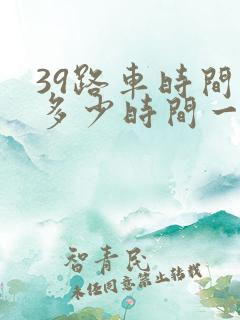 39路車時間
多少時間一
智青民
未经同意禁止转载